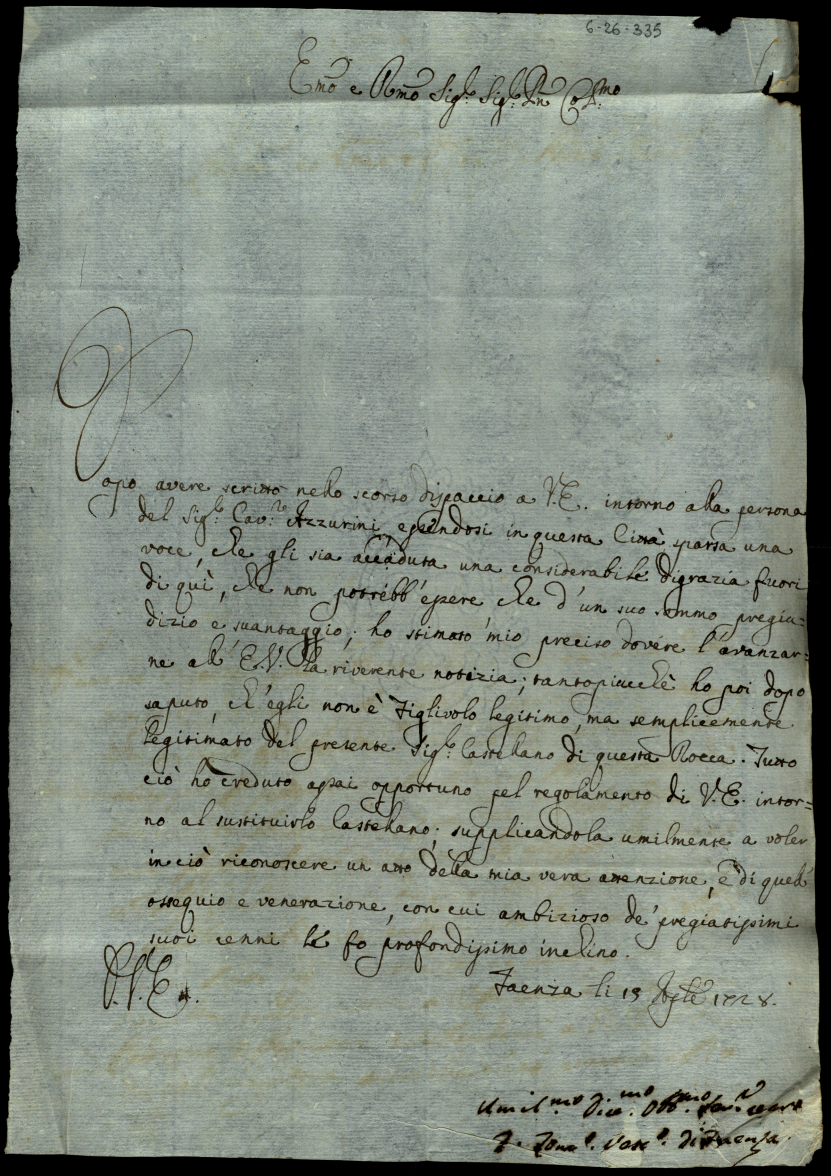 6-26-335
Emo e Rmo Sigr. Sigr. Pn Colmo
Dopo avere scritto nello scorso dispaccio a V.E. intorno alla persona
del Sigr. Cavre. Azzurini essendosi in questa Città sparsa una
voce, che gli sia accaduta una considerabile disgrazia fuori
di quì, che non potrebb'essere che d'un suo sommo pregiu=
dizio e svantaggio; ho stimato mio preciso dovere l'avanzar=
ne all'E.V. la riverente notizia; tantopiucchè ho poi dopo
saputo, ch'egli non è Figlivolo legitimo, ma semplicemente
legitimato del presente Sigr. Castellano di questa Rocca. Tutto
ciò ho creduto assai opportuno pel regolamento di V.E. intor=
no al sustituirlo Castellano; supplicandola umilmente a voler
in ciò riconoscere un atto della mia vera attenzione, e di quell'
ossequio e venerazione, con cui ambizioso de' pregiatissimi
suoi cenni le fo profondissimo inchino.
D.V.E.
Faenza li 19 Aple 1728.
Umilmo Divmo Obbmo Servre vero
Vesco. di Faenza.